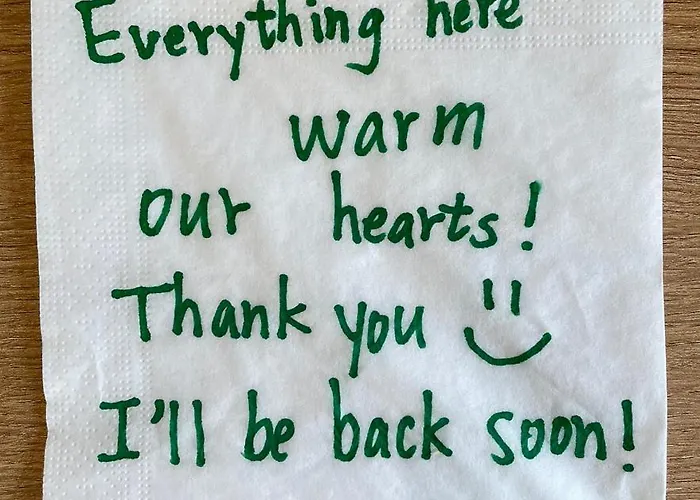 Everything here
warm
our hearts!
Thank you
I'll be back soon!